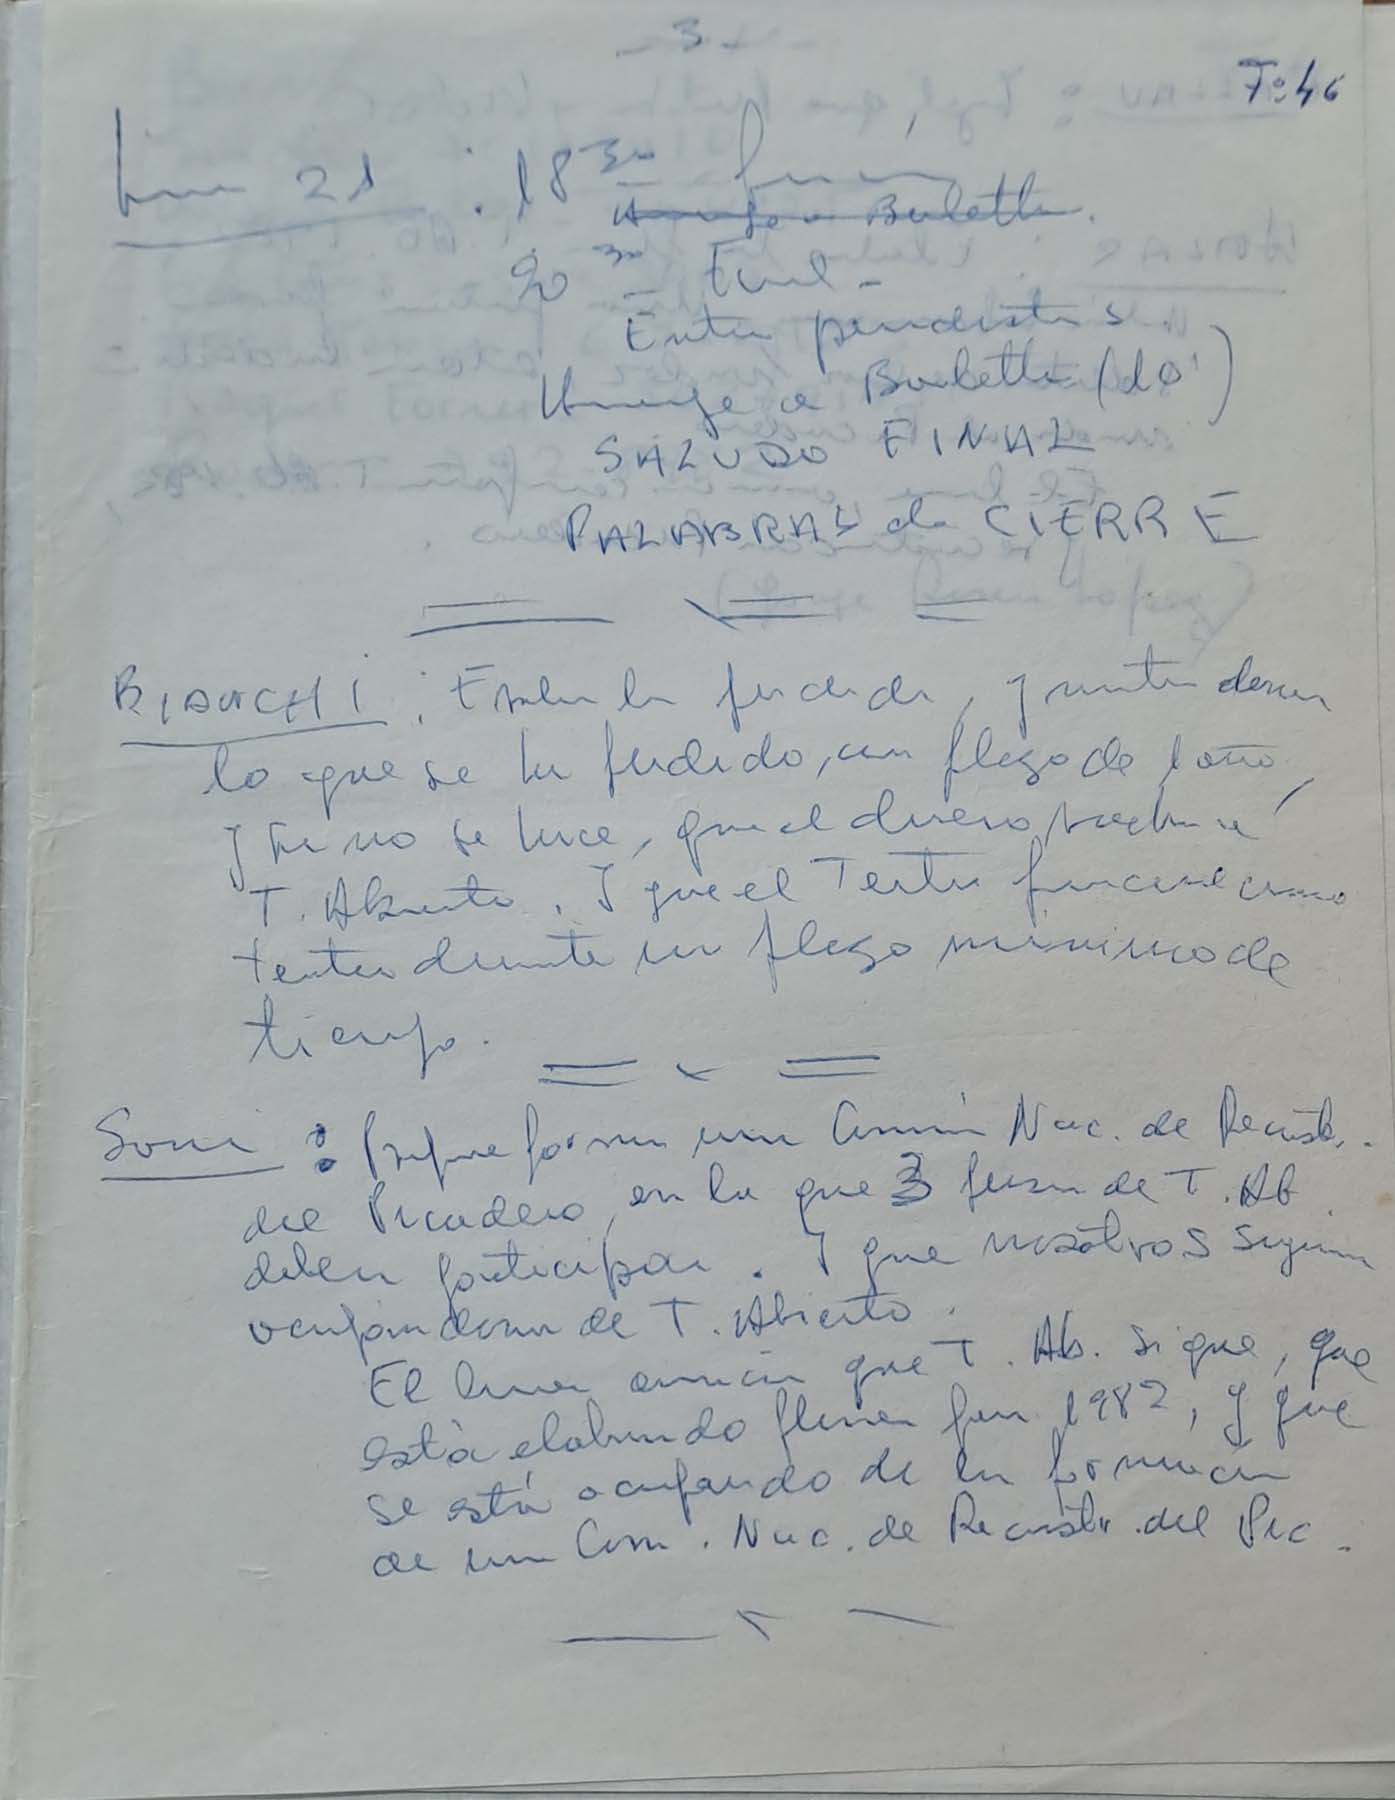 - 3 -
Fº 46
Lun 21 : 18 30 func
Homenaje a Barletta.
20 30 - Final -
Entre periodistas.
Homenaje a Barletta (do')
SALUDO FINAL
PALABRAS de CIERRE
BIANCHI : la perdida, y
lo que se ha perdido, un plazo de 1 año,
y si no se hace, que el dinero a
T. Abierto. Y que el Teatro funcione como
teatro durante un plazo mínimo de
tiempo.
Somi : Propone formar una Comisión Nac. de Reconstr.
del Picadero, en la que 3 pers de T. Ab.
deben participar. Y que nosotros sigamos
ocupandonos de T. Abierto.
El lunes anunciar que T. Ab. sigue, que
está elaborando planes para 1982, y que
se está ocupando de la formación
de una Com. Nac. de Reconstr. del Pic.